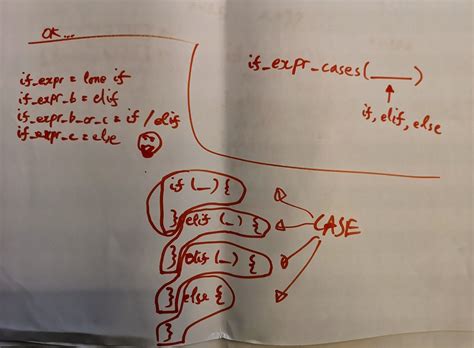 OK...
if_expr = lone if
if_expr_b = elif
if_expr_b_or_c = if / elif
if_expr_c = else
if_expr_cases(____)
if, elif, else
if (_) {
} elif (_) {
} elif (_) {
} else {
}
CASE